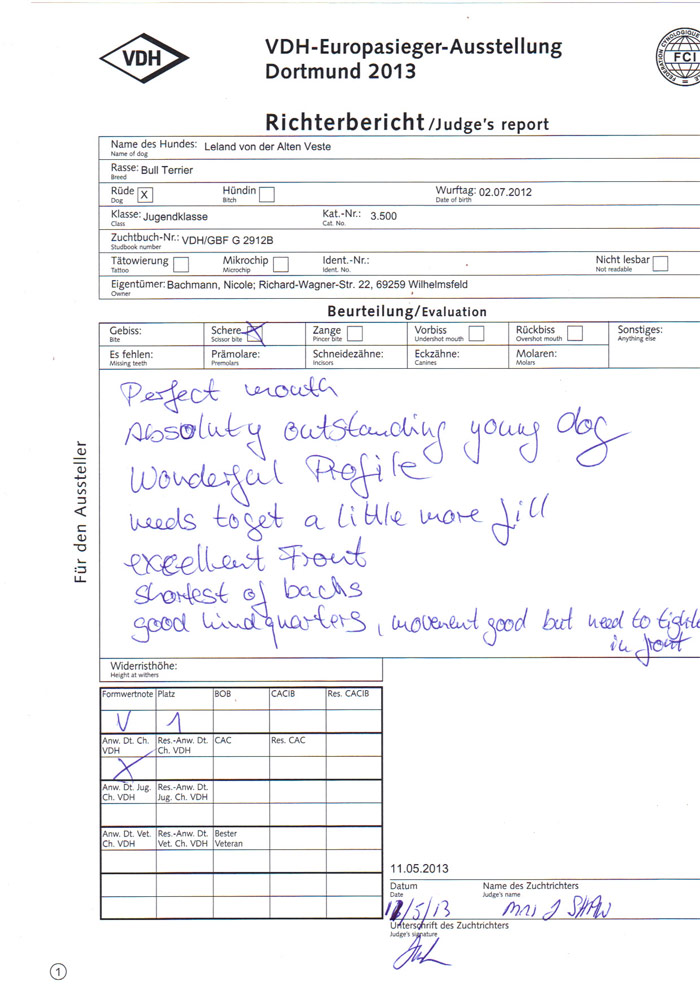 VDH
VDH-Europasieger-Ausstellung
Dortmund 2013
FEDERATION CYNOLOGIQUE
FCI
Richterbericht /Judge's report
Name des Hundes: Leland von der Alten Veste
Name of dog
Rasse: Bull Terrier
Breed
Rüde X Hündin Wurftag: 02.07.2012
Dog Bitch Date of birth
Klasse: Jugendklasse Kat.-Nr.: 3.500
Class Cat. No.
Zuchtbuch-Nr.: VDH/GBF G 2912B
Studbook number
Tätowierung Mikrochip Ident.-Nr.: Nicht lesbar
Tattoo Microchip Ident. No. Not readable
Eigentümer: Bachmann, Nicole; Richard-Wagner-Str. 22, 69259 Wilhelmsfeld
Owner
Beurteilung/Evaluation
Gebiss: Schere X Zange Vorbiss Rückbiss Sonstiges:
Bite Scissor bite Pincer bite Undershot mouth Overshot mouth Anything else
Es fehlen: Prämolare: Schneidezähne: Eckzähne: Molaren:
Missing teeth Premolars Incisors Canines Molars
Für den Aussteller
Perfect mouth
Absoluty outstanding young dog
Wonderful Profile
needs to get a little more fill
excellent Front
shortest of bachs
good hindquarters, movement good but need to tighte
in front
Widerristhöhe:
Height at withers
Formwertnote Platz BOB CACIB Res. CACIB
V 1
Anw. Dt. Ch. VDH Res.-Anw. Dt. Ch. VDH CAC Res. CAC
X
Anw. Dt. Jug. Ch. VDH Res.-Anw. Dt. Jug. Ch. VDH
Anw. Dt. Vet. Ch. VDH Res.-Anw. Dt. Vet. Ch. VDH Bester Veteran
11.05.2013
Datum Name des Zuchtrichters
Date Judge's name
/5/13 SHAW
Unterschrift des Zuchtrichters
Judge's signature
1